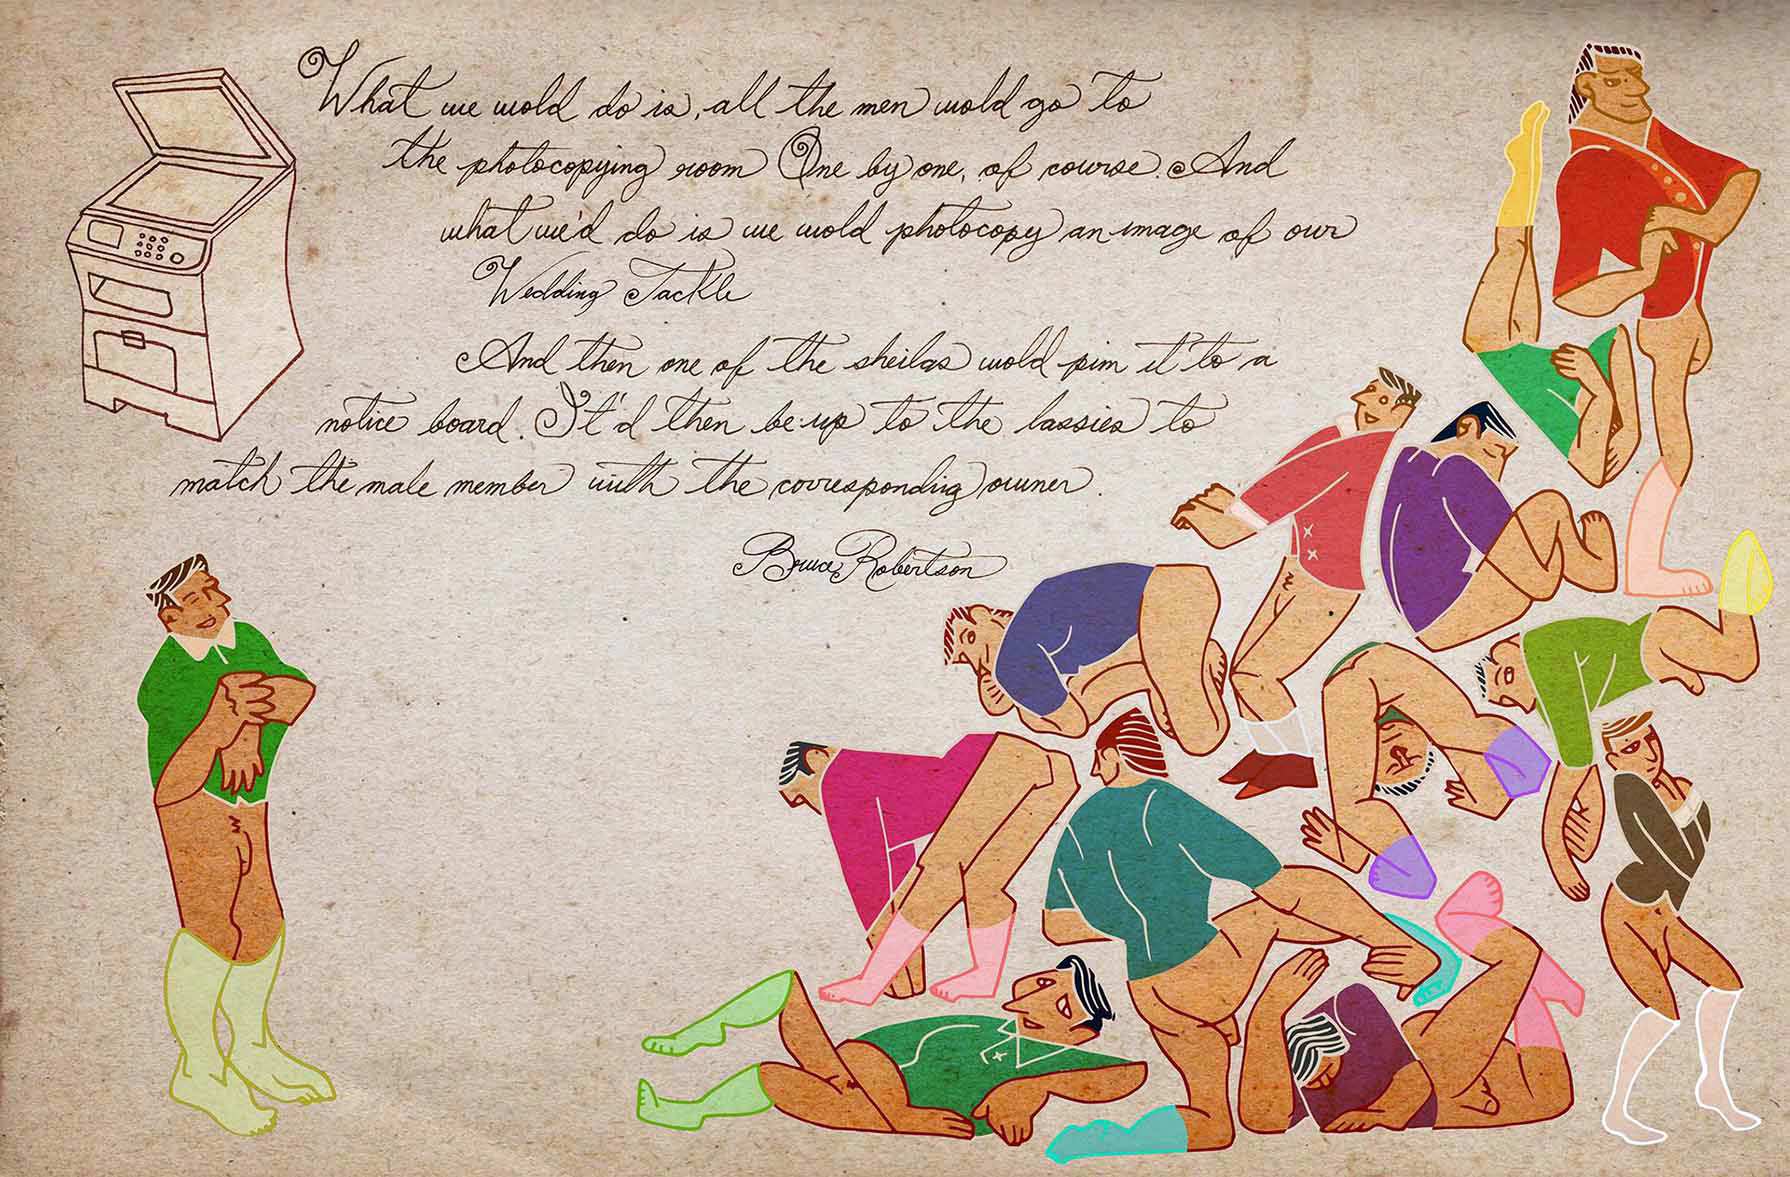 What we wold do is, all the men wold go to
the photocopying room One by one, of course. And
what we'd do is we wold photocopy an image of our
Wedding Tackle
And then one of the sheilas wold pim it to a
notice board. It'd then be up to the lassies to
match the male member with the correspondig owner.
Bruce Robertson